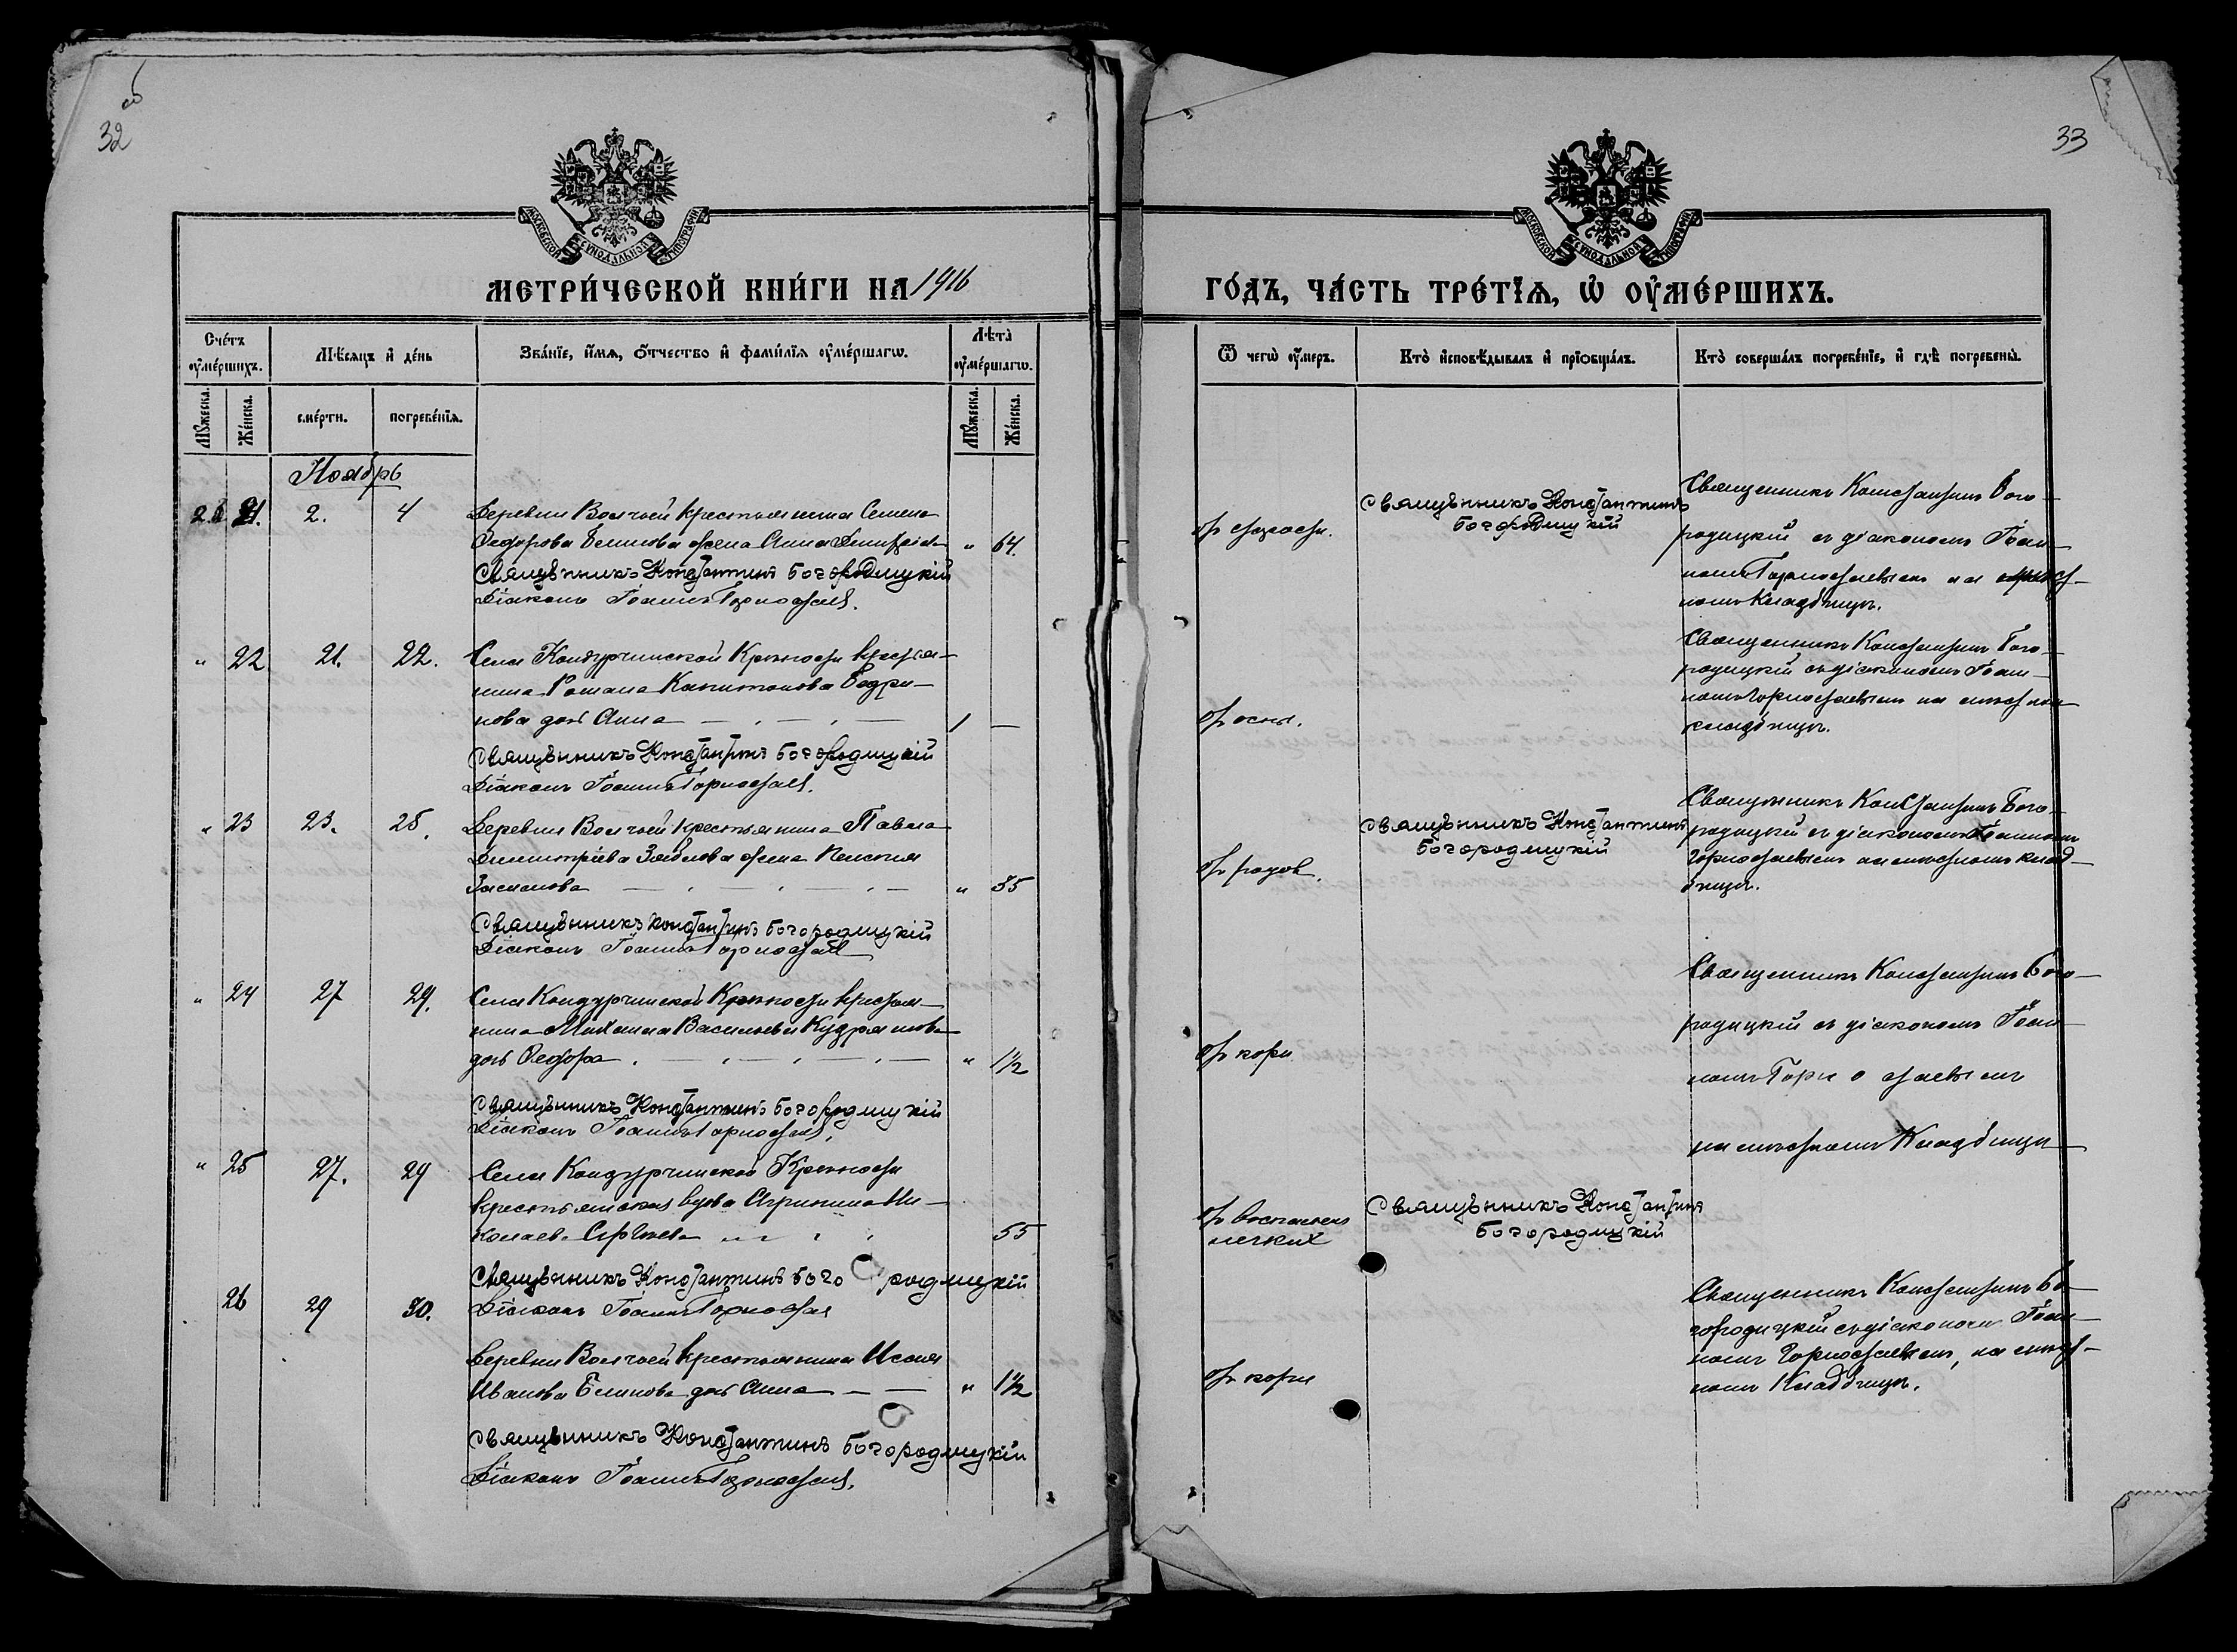 32 об
33
МОСКОВСКОЙ СѴНОДАЛЬНОЙ ТИПОГРАФІИ
МОСКОВСКОЙ СѴНОДАЛЬНОЙ ТИПОГРАФІИ
МЕТРИ́ЧЕСКОЙ КНИ́ГИ НА 1916
ГО́ДЪ, ЧА́СТЬ ТРЕ́ТІѦ, Ѡ҆ ОУ҆МЕ́РШИХЪ.
Сче́тъ оу҆ме́ршихъ.
Мѣ́сяцъ и҆ де́нь
Зва́нїе, и҆́мя, ѻ҆́тчество и҆ фами́лїя оу҆ме́ршагѡ.
Лѣ́та оу҆ме́ршагѡ.
Ѿ чегѡ̀ оу҆́меръ.
Кто̀ и҆сповѣ́дывалъ и҆ прїѡбща́лъ.
Кто̀ соверша́лъ погребе́нїе, и҆ гдѣ̀ погребены̀.
Мꙋ́жеска.
Же́нска.
сме́рти.
погребе́нїя.
Мꙋ́жеска.
Же́нска.
Ноябрь
21. 2. 4 Деревни Волчьей крестьянина Семена
Федорова Блинова жена Анна " 64.
Священникъ Константинъ Богородицкій
Діаконъ Іоаннъ Горностаев.
от старости.
Священникъ Константинъ
Богородицкій
Священникъ Константинъ Бого-
родицкій съ діакономъ Іоан-
номъ Горностаевымъ на мѣст-
номъ Кладбищѣ.
" 22 21. 22. Села Кондурчинской Крѣпости крестья-
нина Романа Капитонова
дочь Анна 1 —
Священникъ Константинъ Богородицкій
Діаконъ Іоаннъ Горностаев.
от оспы.
Священникъ Константинъ Бого-
родицкій съ діакономъ Іоан-
номъ Горностаевымъ на мѣстном
кладбищѣ.
" 23 23. 25. Деревни Волчьей крестьянина Павла
Димитріева жена
" 35
Священникъ Константинъ Богородицкій
Діаконъ Іоаннъ Горностаев
от родов.
Священникъ Константинъ
Богородицкій
Священникъ Константинъ Бого-
родицкій съ діакономъ Іоанномъ
Горностаевымъ на мѣстномъ клад-
бищѣ.
" 24 27 29. Села Кондурчинской Крѣпости крестья-
нина Михаила Васильева Кудряшова
дочь Федора " 1½
Священникъ Константинъ Богородицкій
Діаконъ Іоаннъ Горностаев.
от кори
Священникъ Константинъ Бого-
родицкій съ діакономъ Іоан-
номъ Горностаевымъ
на мѣстномъ Кладбищѣ
" 25 27. 29 Села Кондурчинской Крѣпости
крестьянская вдова Агрипина Ни-
колаева 55
Священникъ Константинъ Богородицкій
Діаконъ Іоаннъ Горностаев
от воспаления
легких
Священникъ Константинъ
Богородицкій
26 29 30.
Деревни Волчьей крестьянина Исаия
Иванова Блинова дочь Анна " 1½
Священникъ Константинъ Богородицкій
Діаконъ Іоаннъ Горностаев.
от кори
Священникъ Константинъ Бо-
городицкій съ діакономъ Іоан-
номъ Горностаевымъ, на мѣст-
номъ Кладбищѣ.